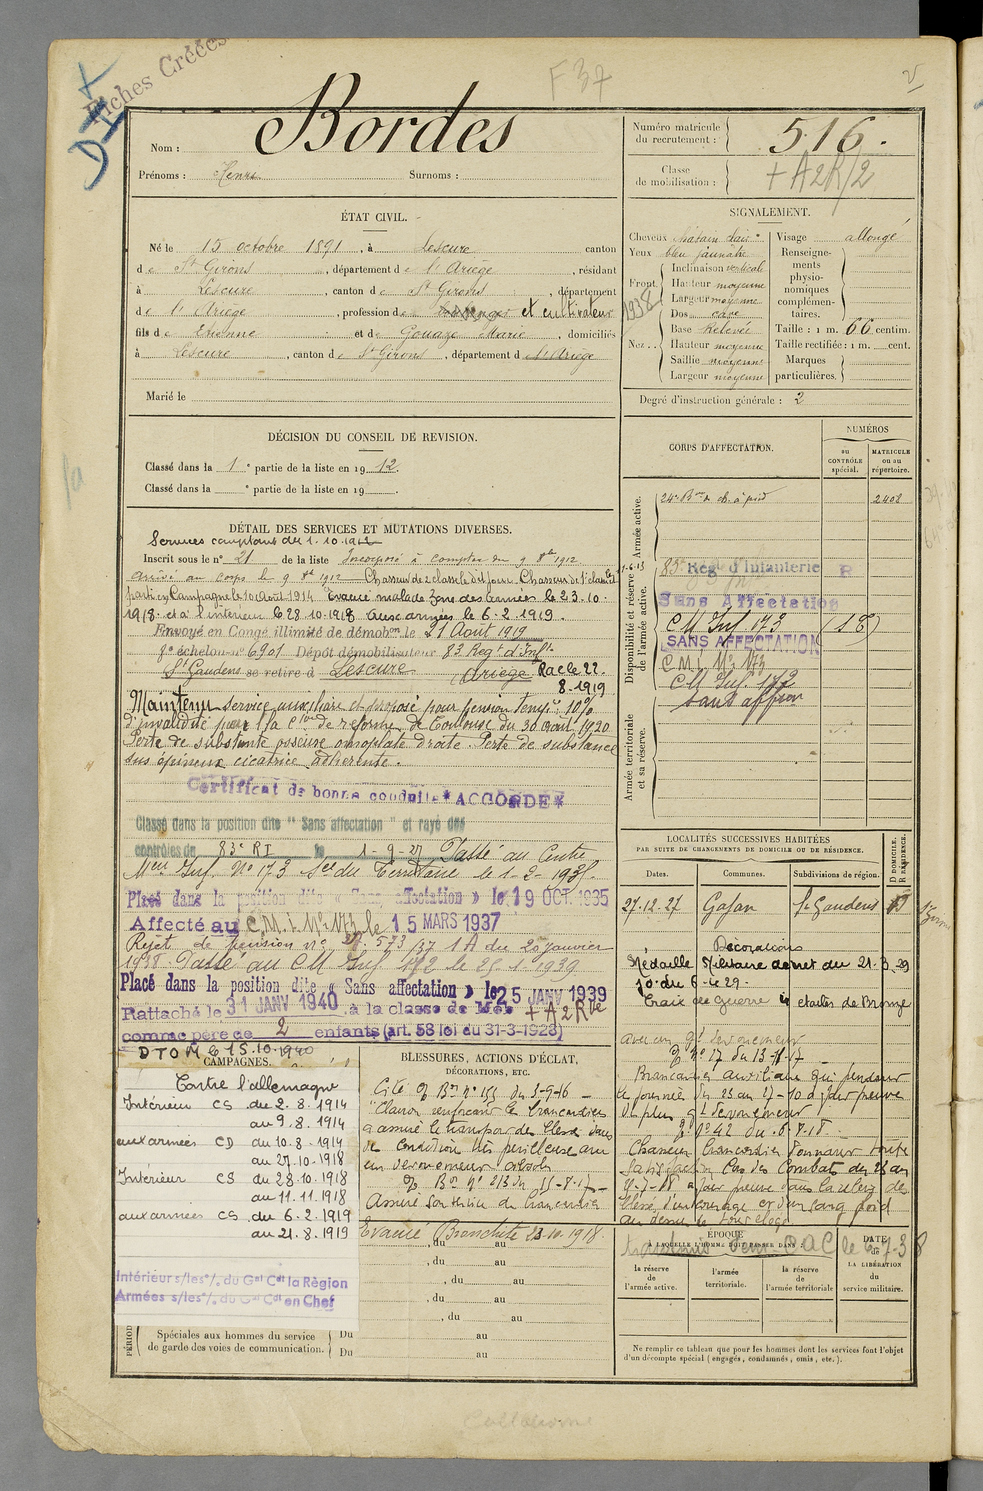 Fiches Créées
F 37
Nom : Bordes
Prénoms : Henri Surnoms :
Numéro matricule du recrutement : 516.
Classe de mobilisation : + A2R/2
ÉTAT CIVIL.
Né le 15 octobre 1891, à Lescure canton
de St Girons, département de l'Ariège, résidant
à Lescure, canton de St Girons, département
de l'Ariège, profession de et cultivateur
fils de Etienne et de Gouaze Marie domiciliés
à Lescure, canton de St Girons, département de l'Ariège
Marié le
SIGNALEMENT.
Cheveux châtain clair
Yeux bleu jaunâtre
Front Inclinaison verticale
Hauteur moyenne
Largeur moyenne
1938
Nez Dos cave
Base Relevée
Hauteur moyenne
Saillie moyenne
Largeur moyenne
Visage allongé
Renseignements physionomiques complémentaires.
Taille : 1 m. 66 centim.
Taille rectifiée : 1 m. cent.
Marques particulières.
Degré d'instruction générale : 2
DÉCISION DU CONSEIL DE REVISION.
Classé dans la 1e partie de la liste en 1912.
Classé dans la e partie de la liste en 19 .
DÉTAIL DES SERVICES ET MUTATIONS DIVERSES.
Services comptant du 1.10.1912
Inscrit sous le n° 21 de la liste Incorporé à compter du 9 8bre 1912
arrivé au corps le 9 8bre 1912 Chasseur de 2e classe le dit jour. Chasseur de 1e classe
parti en Campagne le 10 août 1914 Evacué malade zone des armées le 23.10.
1918. et à l'intérieur le 28.10.1918 aux armées le 6.2.1919.
Envoyé en Congé illimité de démobon le 21 Août 1919
8e échelon n° 6901 Dépôt démobilisateur 83 Regt d'Infie
St Gaudens se retire à Lescure Ariège Rac le 22.
8.1919
Maintenu service auxiliaire et proposé pour pension temp.re 10%
d'invalidité par la Cion de réforme de Toulouse du 30 août 1920
Perte de substance osseuse omoplate droite. Perte de substance
sus épineux cicatrice adhérente.
Certificat de bonne conduite * ACCORDE *
Classé dans la position dite " Sans affectation " et rayé des
contrôles du 83e RI le 1-9-27 Passé au Centre
Mob. Inf. N° 173 Son du Territoire le
Placé dans la position dite « Sans affectation » le 19 OCT. 1935
Affecté au C.M.I. N° 173 le 15 MARS 1937
Rejet de pension n° 573/37 1A du 20 janvier
1938. Passé au CM Inf. 172 le 25.1.1939
Placé dans la position dite « Sans affectation » le 25 JANV 1939
Rattaché le 31 JANV 1940 à la classe de Mob + A 2 Rve
comme père de 2 enfants (art. 58 loi du 31-3-1928)
D T O M le 15.10.1940
CORPS D'AFFECTATION.
NUMÉROS
au CONTRÔLE spécial.
MATRICULE ou au répertoire.
Armée active.
24e Bon de ch. à pied 2408
Disponibilité et réserve de l'armée active.
83e Rég d'Infanterie R
Sans Affectation
CM Inf. 173 (18)
SANS AFFECTATION
C.M.I. N° 173
CM Inf. 172
sans affon
Armée territoriale et sa réserve.
LOCALITÉS SUCCESSIVES HABITÉES
PAR SUITE DE CHANGEMENTS DE DOMICILE OU DE RÉSIDENCE.
Dates. Communes. Subdivisions de région. D DOMICILE. R RÉSIDENCE.
27.12.27 St Gaudens D
Décorations
Médaille Militaire décret du 21.3.29
jo du 6-4-29.
Croix de Guerre étoiles de Bronze
CAMPAGNES.
Contre l'allemagne
Intérieur CS du 2.8.1914
au 9.8.1914
aux armées CD du 10.8.1914
au 27.10.1918
Intérieur CS du 28.10.1918
au 11.11.1918
aux armées CS du 6.2.1919
au 21.8.1919
Intérieur s/les°/. du Gal Cdt la Région
Armées s/les°/. du Gal Cdt en Chef
Spéciales aux hommes du service de garde des voies de communication.
BLESSURES, ACTIONS D'ÉCLAT,
DÉCORATIONS, ETC.
Cité O/ Bon N° 155 du 5-9-16 -
"Clairon renforçant les brancardiers
a assuré le transport des blessés dans
des conditions très périlleuses avec
un dévouement absolu
O/ Bon N° 213 du 15-8-17 -
Assuré son service de brancardier
avec un gd dévouement
O/ N° 17 du 13-11-17 -
Brancardier auxiliaire qui pendant
la journée du 23 au 27-10 a fait preuve
du plus gd dévouement
O/ N° 42 du 6.8.18 -
Chasseur brancardier donnant toute
satisfaction.
Evacué Bronchite 23.10.1918.
, du au
, du au
, du au
, du au
Du au
Du au
ÉPOQUE
À LAQUELLE L'HOMME DOIT PASSER DANS :
la réserve de l'armée active.
l'armée territoriale.
la réserve de l'armée territoriale
DATE de LA LIBÉRATION du service militaire.
Ne remplir ce tableau que pour les hommes dont les services font l'objet
d'un décompte spécial (engagés, condamnés, omis, etc.).